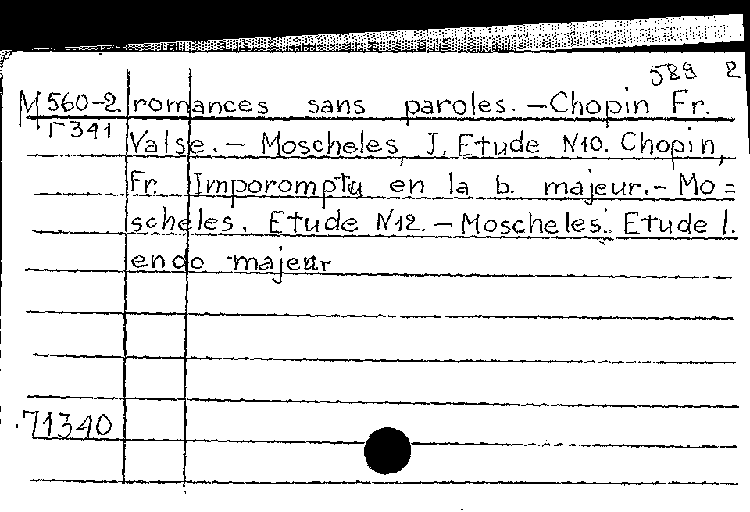 589 2
М 560-2 romances sans paroles. - Chopin Fr.
Г 341
Valse. - Moscheles, J. Etude N10. Chopin,
Fr. Imporomptu en la b. majeur. - Mo=
scheles. Etude N12 - Moscheles. Etude 1.
endo majeur
71340